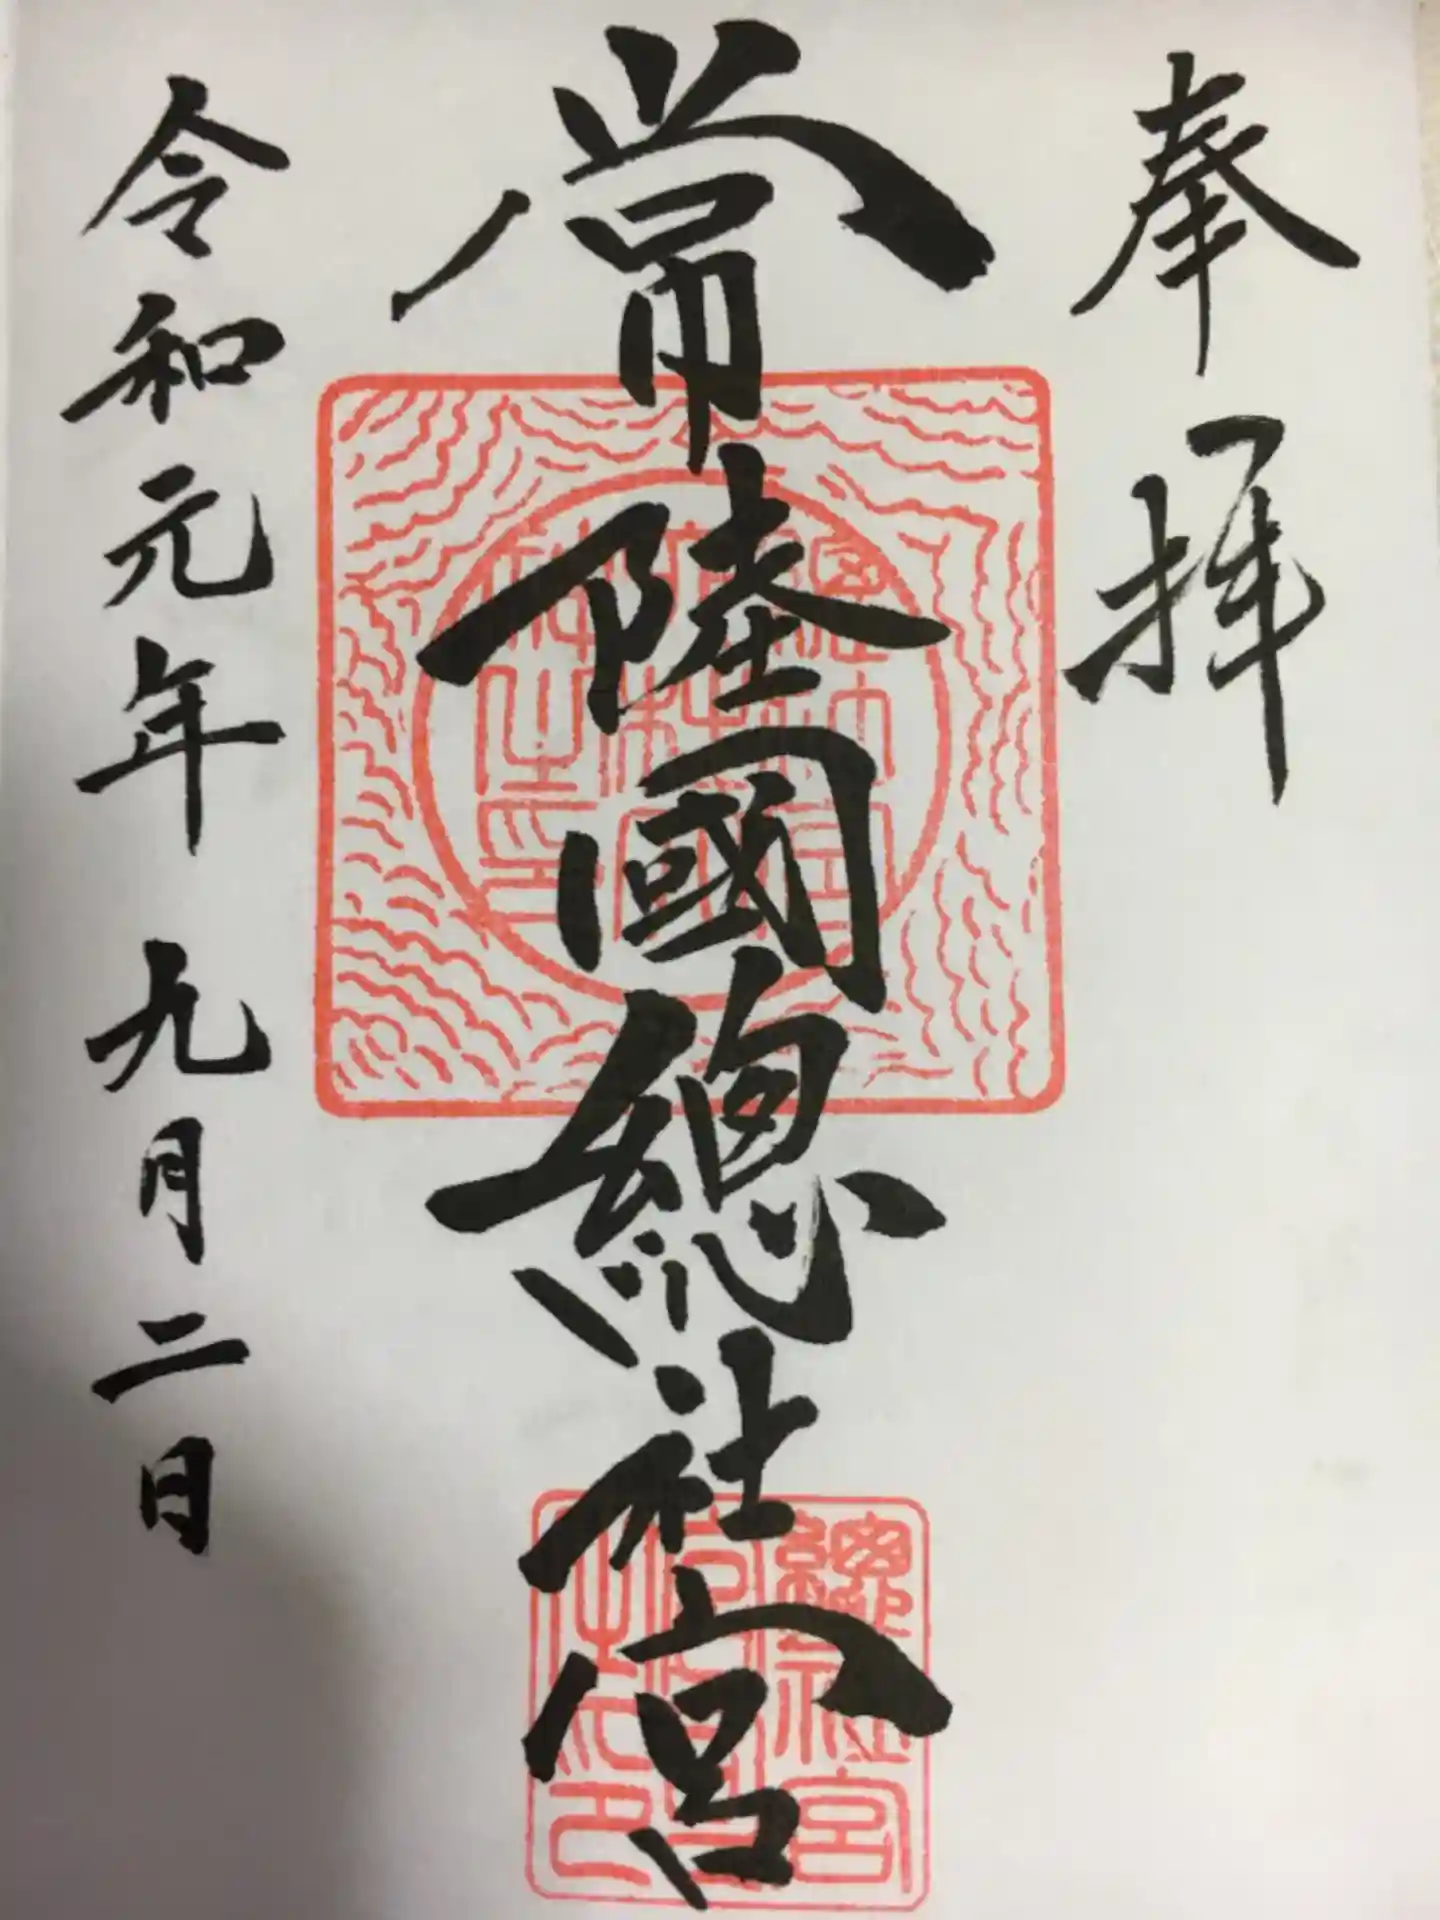 奉拝
常陸國總社宮
令和元年 九月二日